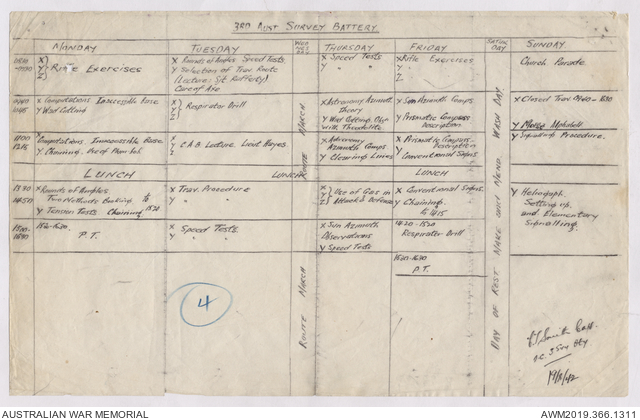 3RD AUST SURVEY BATTERY.
MONDAY
TUESDAY
WEDNESDAY
THURSDAY
FRIDAY
SATURDAY
SUNDAY
X
Y
Z
Rifle Exercises
X Rounds of Angles Speed Tests
Y Selection of Trav. Route
(Lecture: Sgt Rafferty)
Care of Axe
X Speed Tests
Y " "
X Rifle Exercises
Y "
Z "
Church Parade
X Computations Inaccessible Base
X
Y
Z
Respirator Drill
X Astronomy Azimuth
Theory
Y
with Theodolite
X Sun Azimuth Comps
Y Prismatic Compass
Description
X Closed Trav.
Y
X Computations Inaccessible Base
Y Chaining.
X
Y
C.A.B Lecture Lieut Hayes
X Astronomy
Azimuth Comps
Y Clearing Lines
X Prismatic Compass
Description
Y Conventional Signs.
Y Signalling Procedure.
LUNCH
LUNCH
LUNCH
X Rounds of Angles
Two Methods Booking to
Y Tension Tests Chaining 1520
X Trav. Procedure
Y " "
X
Y
Z
Use of Gas in
Attack & Defence
X Conventional Signs.
Y Chaining.
to 1415
Y Heliograph
Setting up
and Elementary
Signalling.
P.T.
X Speed Tests
Y " "
X Sun Azimuth
Observations
Y Speed Tests
1420-1520
Respirator Drill
1530-1630
P.T.
ROUTE MARCH
ROUTE MARCH
DAY OF REST MAKE AND MEND. WASH DAY.
4
AUSTRALIAN WAR MEMORIAL
AWM2019.366.1311